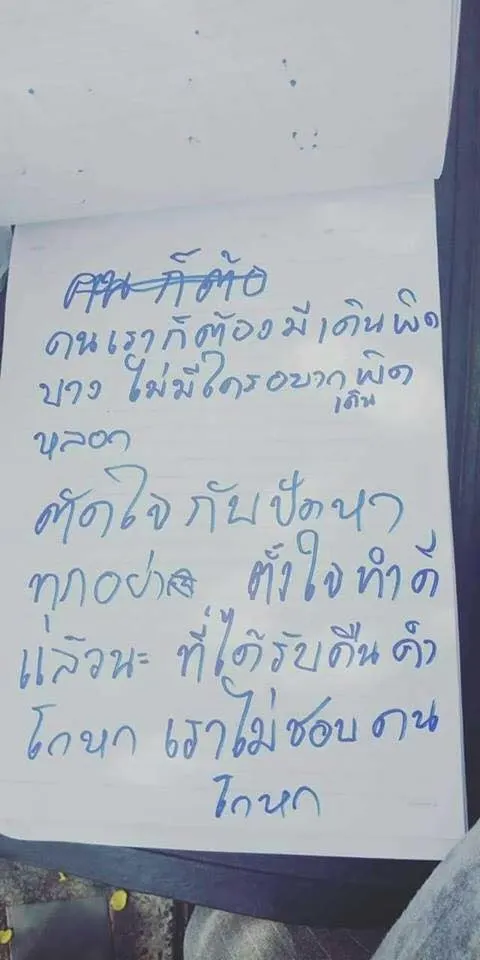 คนก็ต้อ
คนเราก็ต้องมีเดินผิด
บาง ไม่มีใครอยากเดินผิด
หลอก
ตัดใจกับปัดหา
ทุกอย่าง ตั้งใจทำดี
แล้วนะ ที่ได้รับคืนคำ
โกหก เราไม่ชอบคน
โกหก